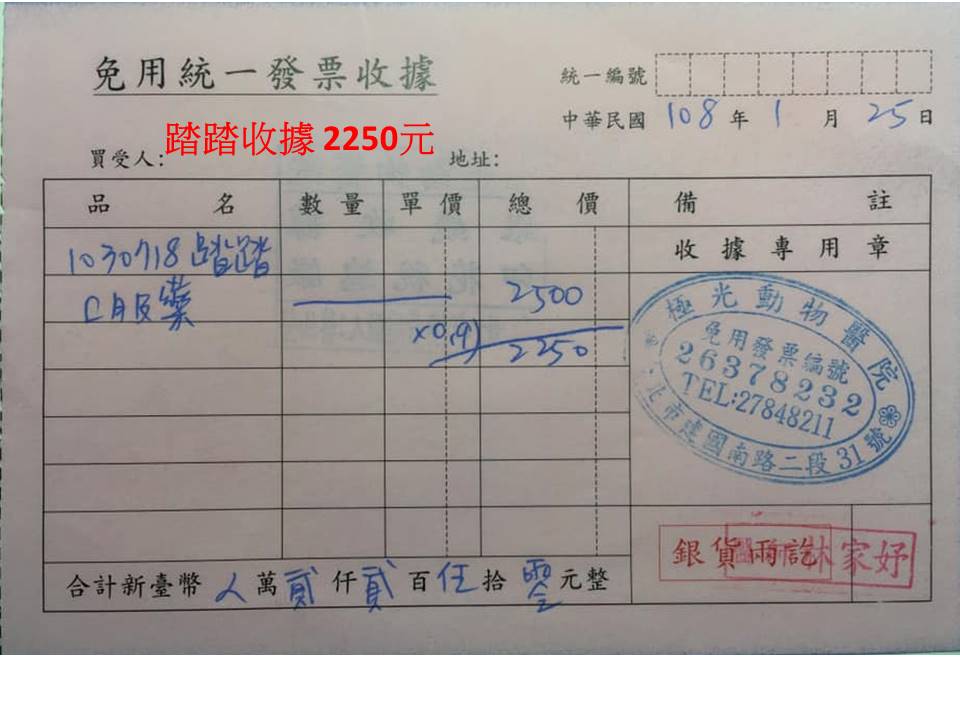 免用統一發票收據
統一編號
中華民國 108 年 1 月 25 日
踏踏收據 2250元
買受人: 地址:
品名 數量 單價 總價 備註
收據專用章
1030718 踏踏
皮藥 2500
x0.9) 2250
極光動物醫院
免用發票編號
26378232
TEL:27848211
北市建國南路二段31號
銀貨兩訖 林家妤
合計新臺幣 萬貳仟貳百伍拾零元整